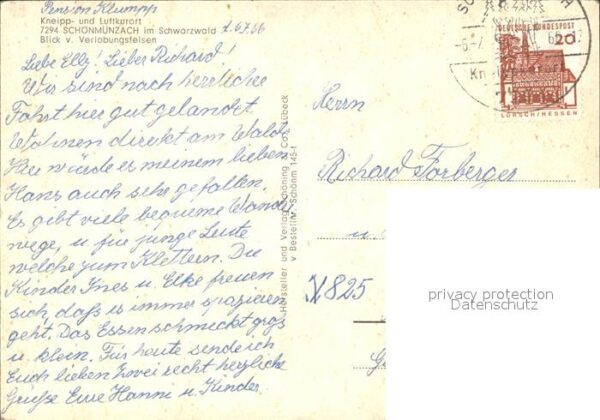 Pension Klumpp
Kneipp- und Luftkurort
7294 SCHÖNMÜNZACH im Schwarzwald
Blick v. Verlobungsfelsen
Liebe Elly! Lieber Richard!
Wir sind nach herrlicher
Fahrt hier gut gelandet.
Wohnen direkt am Wald.
Hier würde es meinem lieben
Hans auch sehr gefallen.
Es gibt viele bequeme Wander
wege, u. für junge Leute
welche zum Klettern. Die
Kinder Ines u. Elke freuen
sich, daß es immer spazieren
geht. Das Essen schmeckt groß
u. klein. Für heute sende ich
Euch lieben Zwei recht herzliche
Grüße Eure Hanni u. Kinder.
Hersteller und Verlag Schöning & Co., Lübeck
v Bestell-Nr. Schönm 145-f
DEUTSCHE BUNDESPOST
20
LORSCH/HESSEN
Herrn
Richard Forberger
u.
X825
privacy protection
Datenschutz